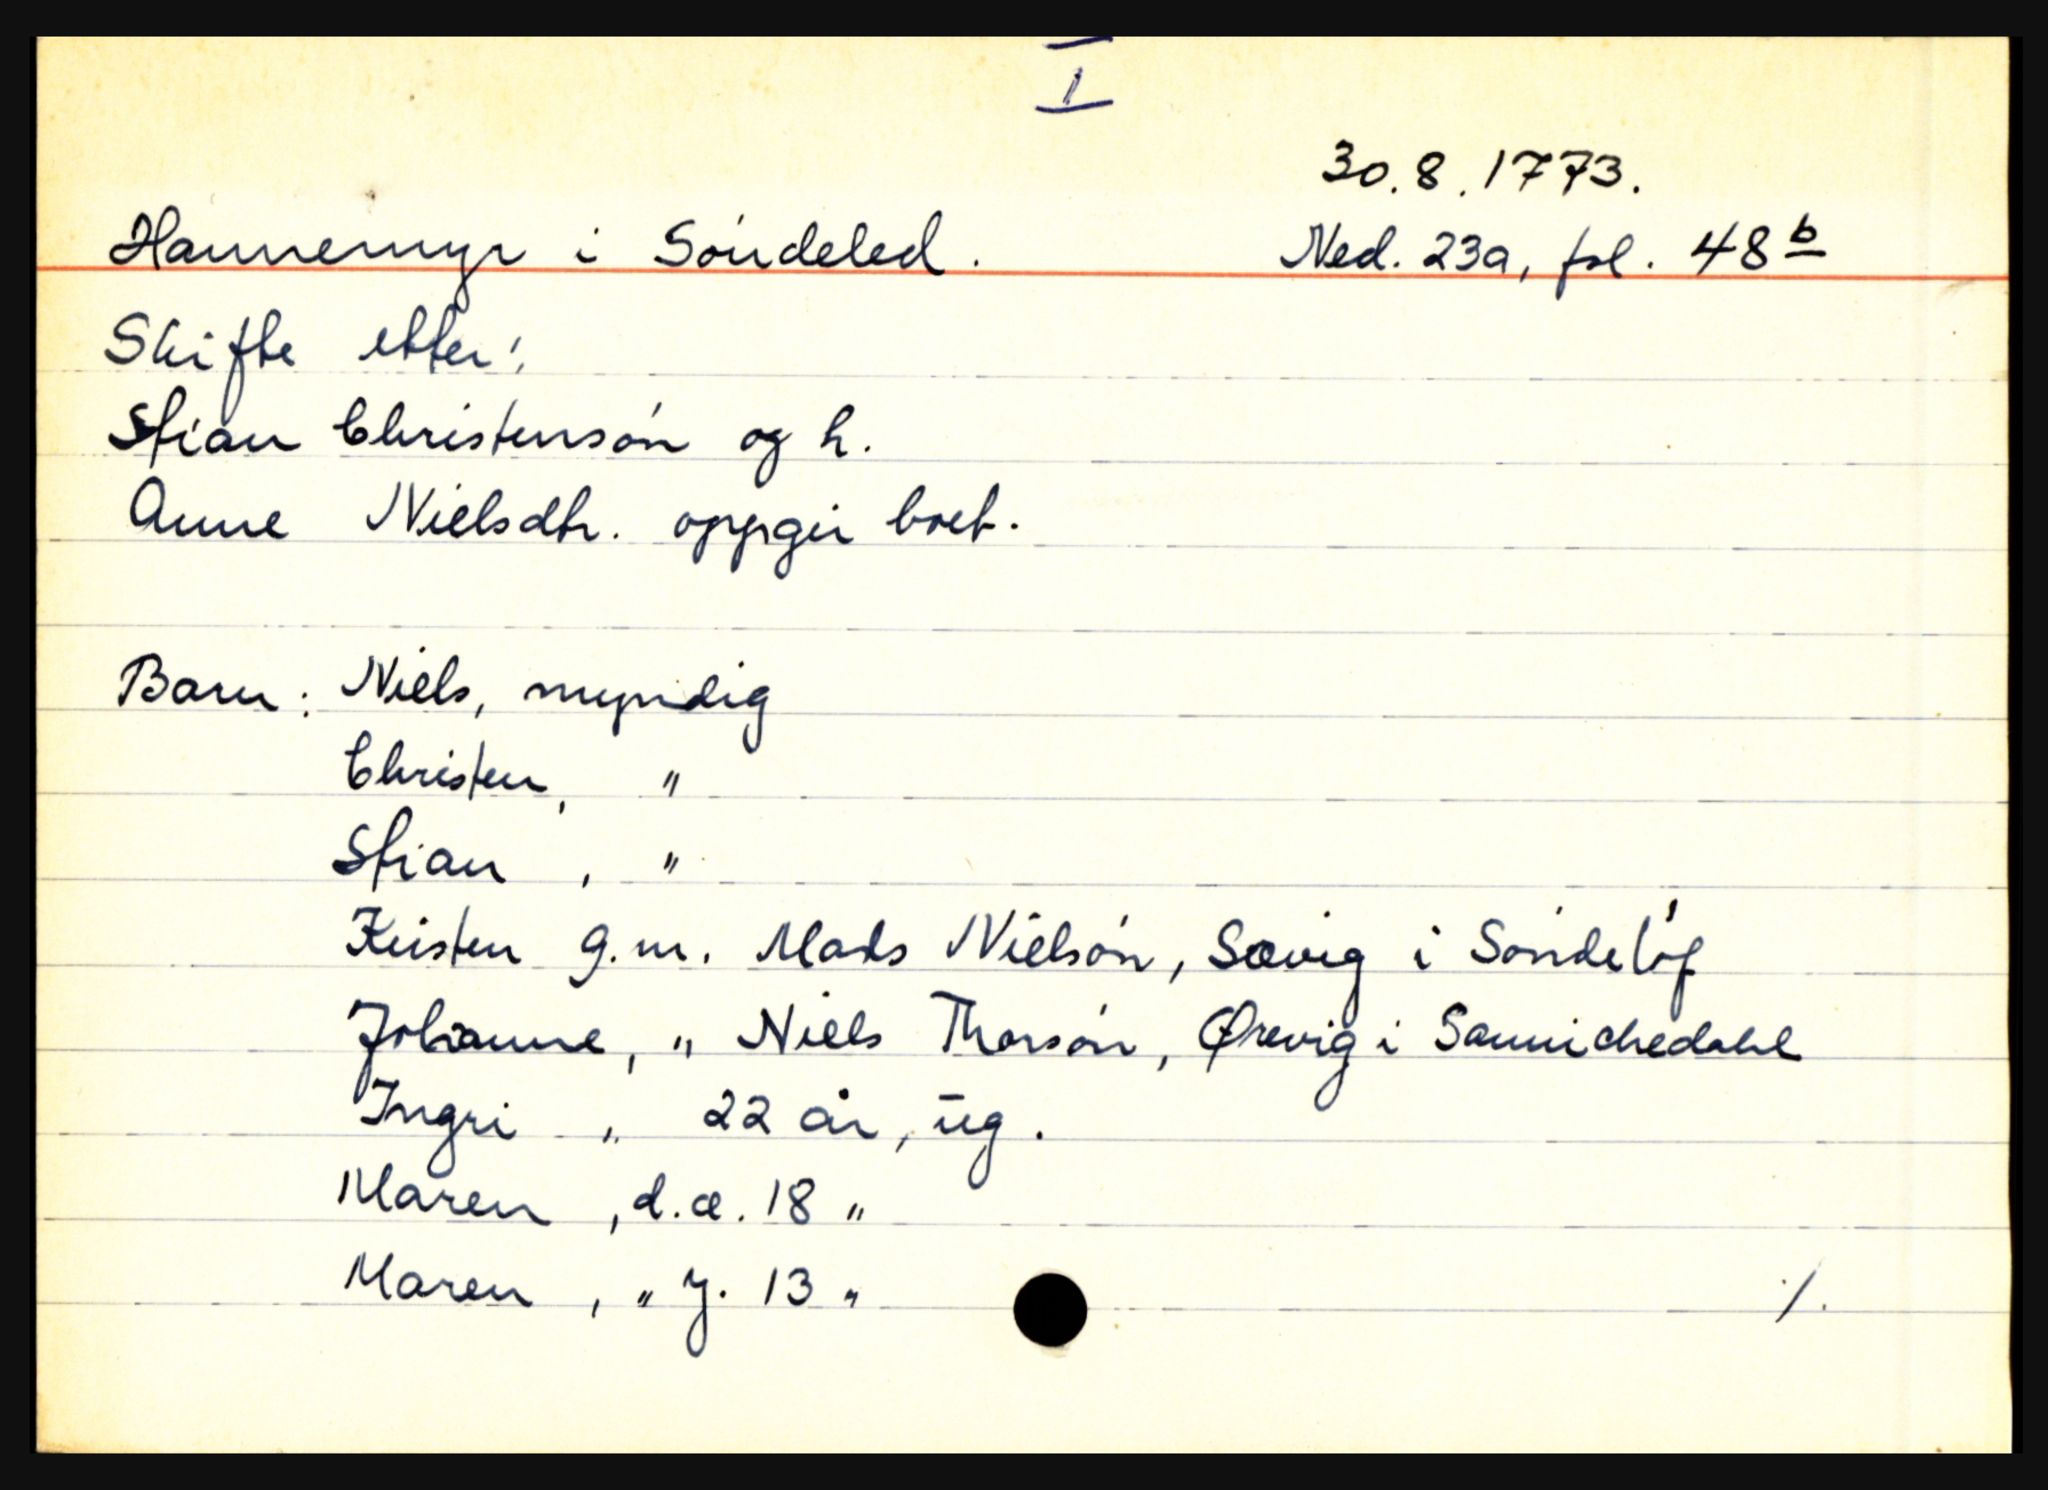 I
30.8.1773.
Hannemyr i Søndeled. Ned. 23a, fol. 48 b
Skifte etter:
Stian Christensøn og h.
Anne Nielsdtr. oppgir boet.
Barn: Niels, myndig
Christen, "
Stian , "
Kristen g.m. Mads Nielsøn, Sævig i Søndeløf
Johanne, " Niels Thorsøn, Ørevig i Sannichedahl
Ingri " 22 år, ug.
Maren , d.æ. 18 "
Maren , " y. 13 "
/.